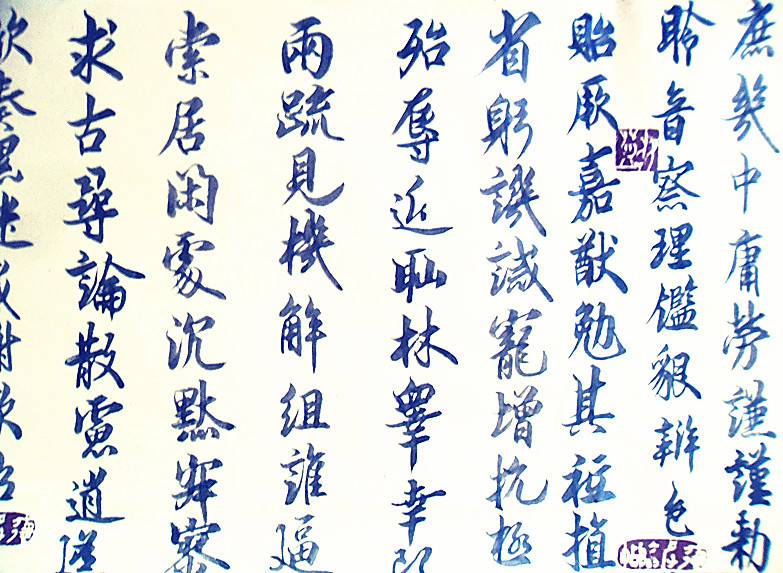 庶幾中庸勞謙謹勅
聆音察理鑑貌辨色
貽厥嘉猷勉其祗植
省躬譏誡寵增抗極
殆辱近耻林皐幸即
兩疏見機解組誰逼
索居閑處沉默寂寥
求古尋論散慮逍遙
欣奏累遣慼謝歡招